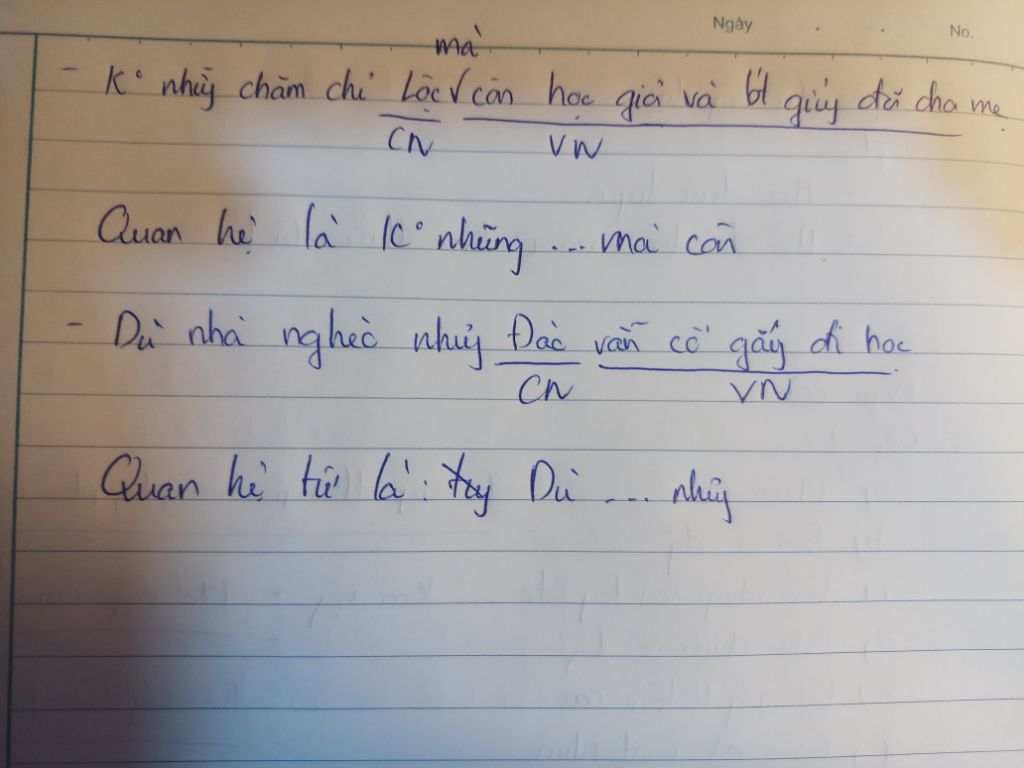 Ngày No.
mà
- K° nhữg chăm chỉ Lộc √ còn học giỏi và bt giúp đỡ cha mẹ
CN VN
Quan hệ là K° những ... mà còn
- Dù nhà nghèo nhưg Đác vẫn cố gắg đi học
CN VN
Quan hệ từ là: Dù ... nhưg